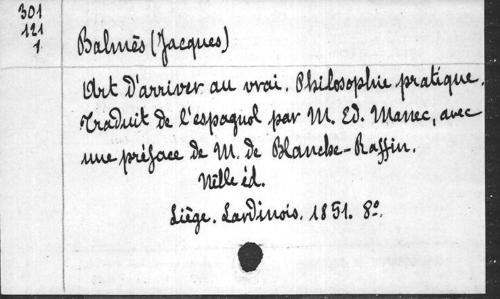 301
121
1
Balmès (Jacques)
Art d'arriver au vrai. Philosophie pratique.
Traduit de l'espagnol par M. Ed. Manec, avec
une préface de M. de Blanche-Raffin.
Nelle éd.
Liège. Lardinois. 1851. 8º.